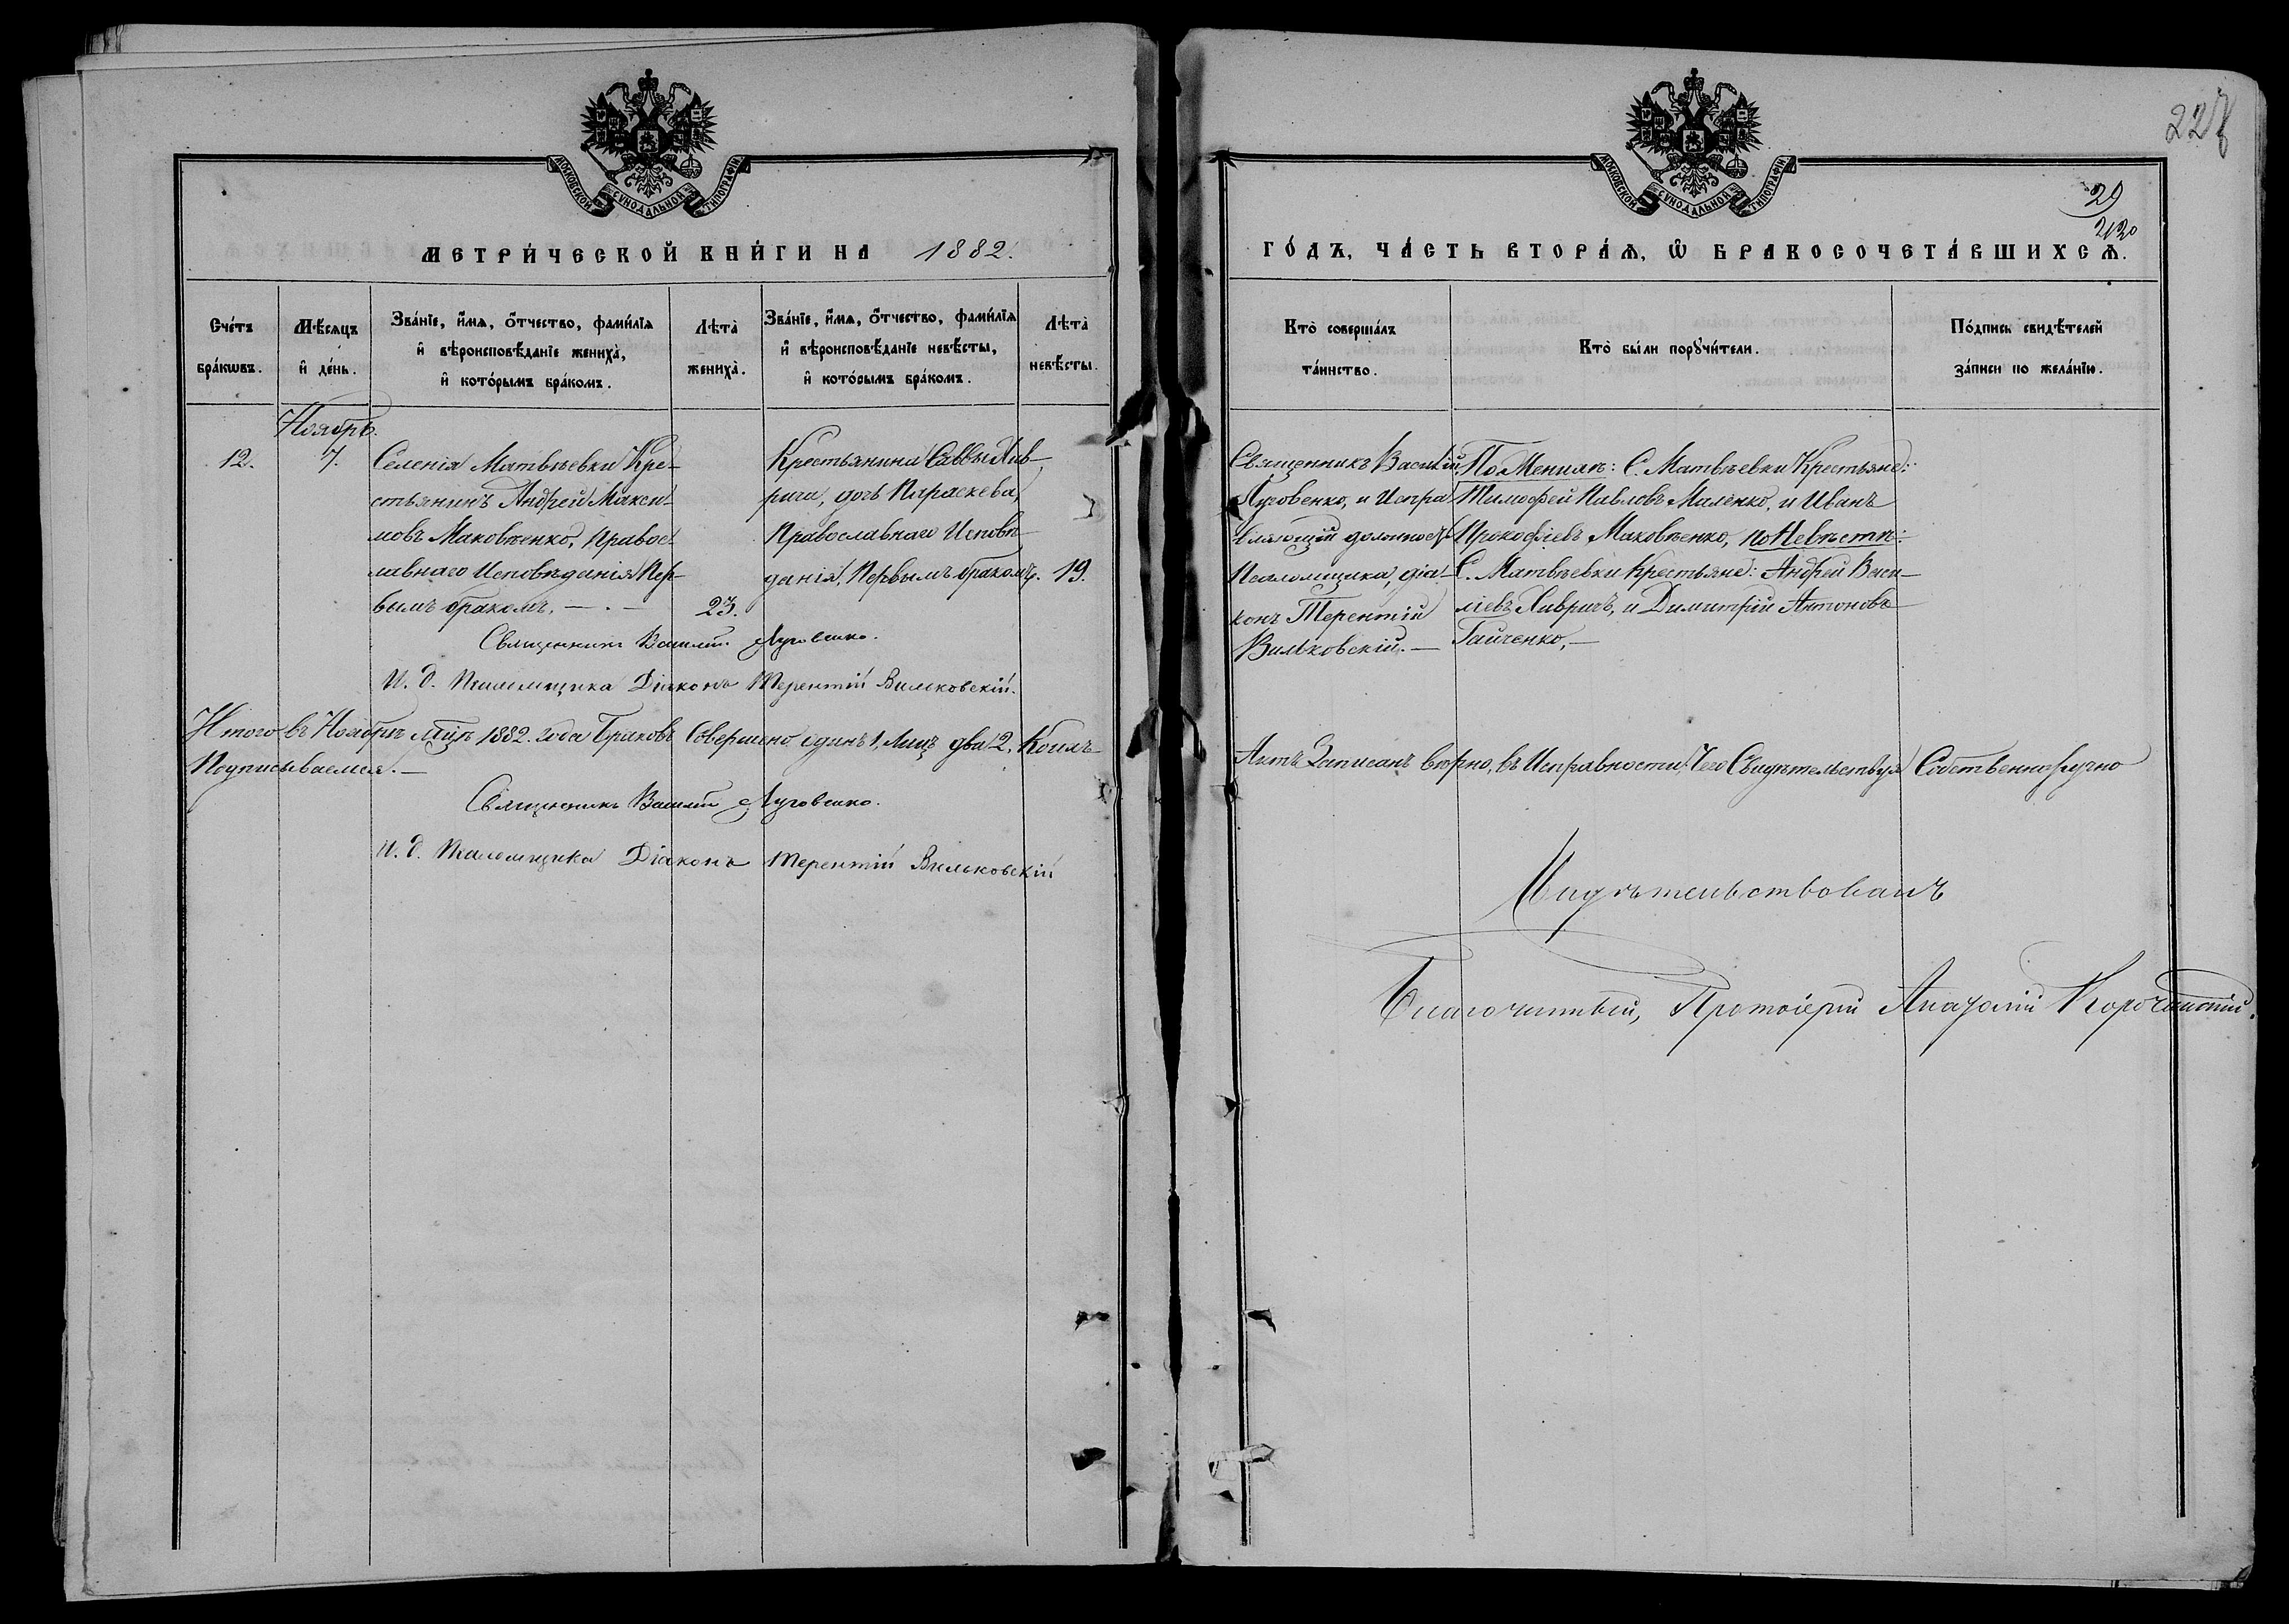 МОСКОВСКОЙ СУНОДАЛЬНОЙ ТИПОГРАФІИ
МЕТРИ́ЧЕСКОЙ КНИ́ГИ НА 1882.
Сче́тъ бра́кѡвъ.
Мѣ́сяцъ и҆ де́нь.
Зва́нїе, и҆́мѧ, ѻ҆́тчество, фами́лїѧ
и҆ вѣроисповѣ́данїе жениха̀,
и҆ кото́рымъ бра́комъ.
Лѣ́та жениха̀.
Зва́нїе, и҆́мѧ, ѻ҆́тчество, фами́лїѧ
и҆ вѣроисповѣ́данїе невѣ́сты,
и҆ кото́рымъ бра́комъ.
Лѣ́та невѣ́сты.
Ноябрь.
12.
7.
Селенія Матвѣевки Кре-
стьянинъ Андрей Макси-
мовъ Маковѣенко, Правос-
лавнаго Исповѣданія Пер-
вымъ бракомъ. — . —
23.
Крестьянина Саввы Хив-
рича, дочь Параскева,
Православнаго Исповѣ-
данія, Первымъ бракомъ.
19.
Священникъ Василій Луговенко.
И. д. Псаломщика Діаконъ Терентій Вильковскій.
Итого въ Ноябрѣ мцѣ 1882. года Браковъ Совершено одинъ 1, Лицъ два 2, Коимъ
Подписываемся. —
Священникъ Василій Луговенко.
И. д. Псаломщика Діаконъ Терентій Вильковскій
228
МОСКОВСКОЙ СУНОДАЛЬНОЙ ТИПОГРАФІИ
29
ГО́ДЪ, ЧА́СТЬ ВТОРА́Ѧ, Ѡ҆ БРАКОСОЧЕТА́ВШИХСѦ.
Кто̀ соверша́лъ
та́инство.
Кто̀ бы́ли порꙋчи́тели.
По́дпись свидѣ́телей
за́писи по жела́нїю.
Священникъ Василій
Луговенко, и Испра
вляющій должность
Псаломщика, діа-
конъ Терентій
Вильковскій. —
По Женихѣ: С. Матвѣевки Крестьяне:
Тимофей Павловъ Маленко, и Иванъ
Прокофіевъ Маковѣенко, по Невѣстѣ:
С. Матвѣевки Крестьяне: Андрей Васи-
ліевъ Хивричъ, и Димитрій Антоновъ
Гайченко, —
Актъ Записанъ вѣрно, въ Исправности, Чего Свидѣтельствую Собственноручно
Свидѣтельствовалъ
Благочинный, Протоіерей Анатолій Корочанскій.